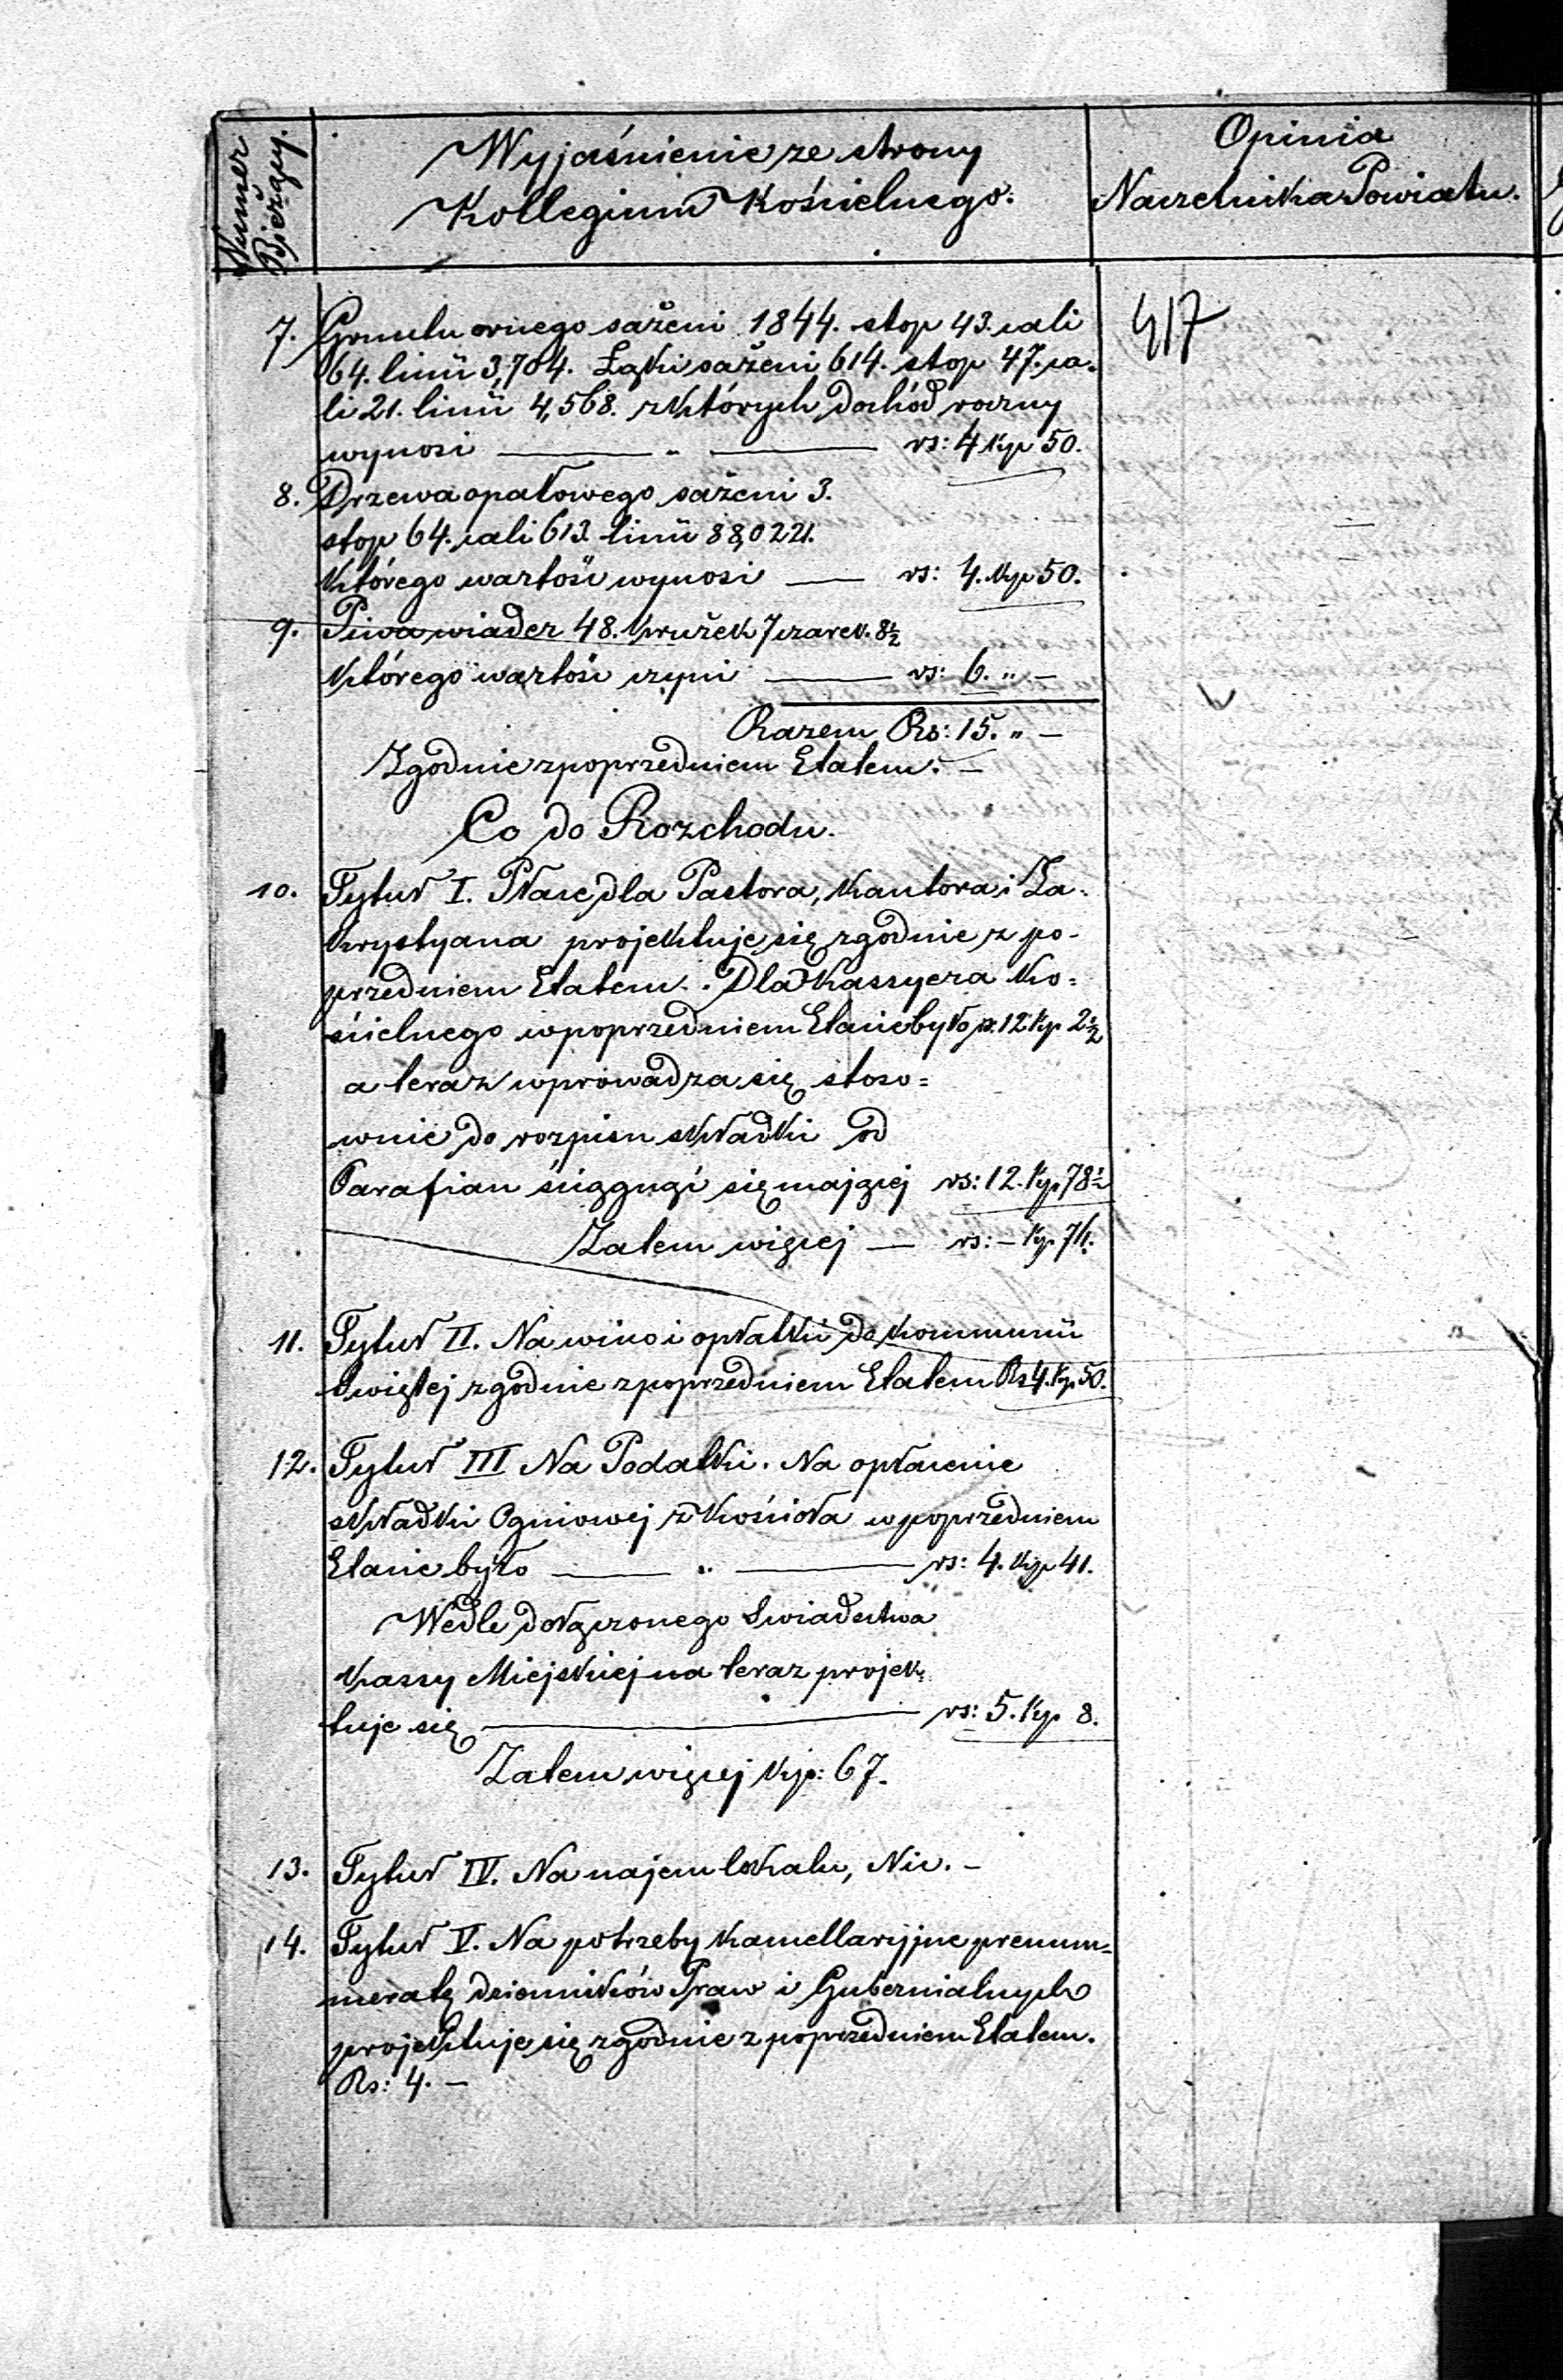 Numer Bieżący.
Wyjaśnienie ze strony
Kollegium Kościelnego.
Opinia
Naczelnika Powiatu.
417
7. Gruntu ornego sażeni 1844. stop 43. cali
64. linii 3,704. Łąki sażeni 614. stop 47. ca-
li 21. linii 4,568. z których dochód roczny
wynosi — „ — rs: 4 kp 50.
8. Drzewa opałowego sażeni 3.
stop 64. cali 613. linii 88,0221.
którego wartość wynosi — rs: 4. kp 50.
9. Piwa wiader 48. kružek 7 czarek. 8½
którego wartość czyni — rs: 6. „ —
Razem Rs: 15. „ —
Zgodnie z poprzedniem Etatem. —
Co do Rozchodu.
10. Tytuł I. Płace dla Pastora, Kantora i Za-
krystyana projektuje się zgodnie z po-
przedniem Etatem. Dla Kassyera Ko-
ścielnego w poprzedniem Etacie było rs. 12 kp 2½
a teraz wprowadza się stoso=
wnie do rozpisu składki od
Parafian ściągnąć się mającej rs: 12. kp 78½
Zatem więcej — rs: — kp 76.
11. Tytuł II. Na wino i opłatki do kommunii
Swiętej zgodnie z poprzedniem Etatem Rs 4. kp. 50.
12. Tytuł III Na Podatki. Na opłacenie
składki Ogniowej z Kościoła w poprzedniem
Etacie było — „ — rs: 4. kp 41.
Wedle dołączonego Swiadectwa
Kassy Miejskiej na teraz projek-
tuje się — rs: 5. kp 8.
Zatem więcej kp: 67.
13. Tytuł IV. Na najem lokalu, Nic. —
14. Tytuł V. Na potrzeby kancellaryjne prenum=
meratę dzienników Praw i Gubernialnych
projektuje się zgodnie z poprzedniem Etatem.
Rs: 4. —